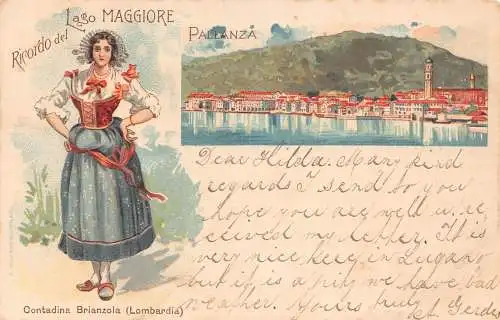 Ricordo del Lago MAGGIORE
PALLANZA
Dear Hilda. Many kind
regards I send to you
hope you are well u. re-
ceived my letter. It is
very nice keep in Lugano
but if is a pity we have bad
weather. Yours truly
Contadina Brianzola (Lombardia)